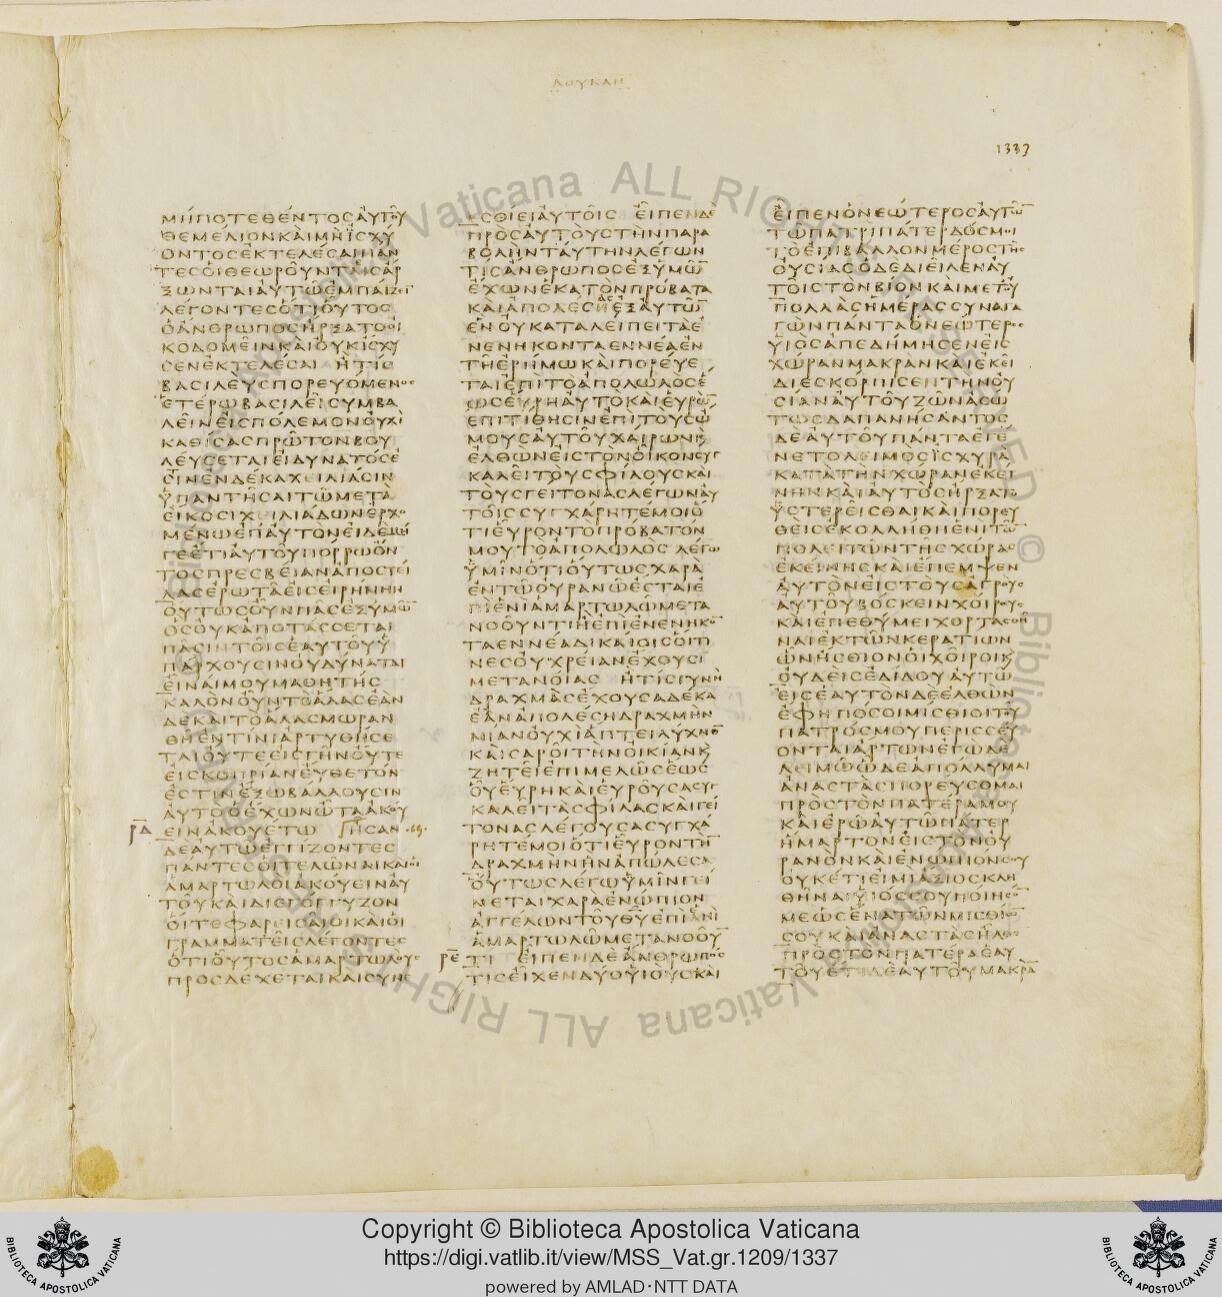 ΛΟΥΚΑΝ
1337
ΜΗΠΟΤΕΘΕΝΤΟΣΑΥΤΟΥ
ΘΕΜΕΛΙΟΝΚΑΙΜΗΙΣΧΥ
ΟΝΤΟΣΕΚΤΕΛΕΣΑΙΠΑΝ
ΤΕΣΟΙΘΕΩΡΟΥΝΤΕΣΑΡ
ΞΩΝΤΑΙΑΥΤΩΕΜΠΑΙΖΕΙ̅
ΛΕΓΟΝΤΕΣΟΤΙΟΥΤΟΣ
ΟΑΝΘΡΩΠΟΣΗΡΞΑΤΟΟΙ
ΚΟΔΟΜΕΙΝΚΑΙΟΥΚΙΣΧΥ
ΣΕΝΕΚΤΕΛΕΣΑΙ ΗΤΙΣ
ΒΑΣΙΛΕΥΣΠΟΡΕΥΟΜΕΝΟΣ
ΕΤΕΡΩΒΑΣΙΛΕΙΣΥΜΒΑ
ΛΕΙΝΕΙΣΠΟΛΕΜΟΝΟΥΧΙ
ΚΑΘΙΣΑΣΠΡΩΤΟΝΒΟΥ
ΛΕΥΣΕΤΑΙΕΙΔΥΝΑΤΟΣΕ
ΣΤΙΝΕΝΔΕΚΑΧΕΙΛΙΑΣΙΝ
ΥΠΑΝΤΗΣΑΙΤΩΜΕΤΑ
ΕΙΚΟΣΙΧΕΙΛΙΑΔΩΝΕΡΧΟ
ΜΕΝΩΕΠΑΥΤΟΝΕΙΔΕΜΗ
ΓΕΕΤΙΑΥΤΟΥΠΟΡΡΩΟΝ
ΤΟΣΠΡΕΣΒΕΙΑΝΑΠΟΣΤΕΙ
ΛΑΣΕΡΩΤΑΕΙΣΕΙΡΗΝΗΝ
ΟΥΤΩΣΟΥΝΠΑΣΕΞΥΜΩ̅
ΟΣΟΥΚΑΠΟΤΑΣΣΕΤΑΙ
ΠΑΣΙΝΤΟΙΣΕΑΥΤΟΥΥ
ΠΑΡΧΟΥΣΙΝΟΥΔΥΝΑΤΑΙ
ΕΙΝΑΙΜΟΥΜΑΘΗΤΗΣ
ΚΑΛΟΝΟΥΝΤΟΑΛΑΣΕΑΝ
ΔΕΚΑΙΤΟΑΛΑΣΜΩΡΑΝ
ΘΗΕΝΤΙΝΙΑΡΤΥΘΗΣΕ
ΤΑΙΟΥΤΕΕΙΣΓΗΝΟΥΤΕ
ΕΙΣΚΟΠΡΙΑΝΕΥΘΕΤΟΝ
ΕΣΤΙΝΕΞΩΒΑΛΛΟΥΣΙΝ
ΑΥΤΟΟΕΧΩΝΩΤΑΑΚΟΥ
ΡΔ ΕΙΝΑΚΟΥΕΤΩ ΗΣΑΝ
ΔΕΑΥΤΩΕΓΓΙΖΟΝΤΕΣ
ΠΑΝΤΕΣΟΙΤΕΛΩΝΑΙΚΑΙΟΙ
ΑΜΑΡΤΩΛΟΙΑΚΟΥΕΙΝΑΥ
ΤΟΥΚΑΙΔΙΕΓΟΓΓΥΖΟΝ
ΟΙΤΕΦΑΡΕΙΣΑΙΟΙΚΑΙΟΙ
ΓΡΑΜΜΑΤΕΙΣΛΕΓΟΝΤΕΣ
ΟΤΙΟΥΤΟΣΑΜΑΡΤΩΛΟΥΣ
ΠΡΟΣΔΕΧΕΤΑΙΚΑΙΣΥΝΕ
ΣΘΙΕΙΑΥΤΟΙΣ ΕΙΠΕΝΔΕ
ΠΡΟΣΑΥΤΟΥΣΤΗΝΠΑΡΑ
ΒΟΛΗΝΤΑΥΤΗΝΛΕΓΩΝ
ΤΙΣΑΝΘΡΩΠΟΣΕΞΥΜΩ̅
ΕΧΩΝΕΚΑΤΟΝΠΡΟΒΑΤΑ
ΚΑΙΑΠΟΛΕΣΗΕΞΑΥΤΩ̅
ΕΝΟΥΚΑΤΑΛΕΙΠΕΙΤΑΕ
ΝΕΝΗΚΟΝΤΑΕΝΝΕΑΕΝ
ΤΗΕΡΗΜΩΚΑΙΠΟΡΕΥΕ
ΤΑΙΕΠΙΤΟΑΠΟΛΩΛΟΣΕ
ΩΣΕΥΡΗΑΥΤΟΚΑΙΕΥΡΩ̅
ΕΠΙΤΙΘΗΣΙΝΕΠΙΤΟΥΣΩ
ΜΟΥΣΑΥΤΟΥΧΑΙΡΩΝΚ
ΕΛΘΩΝΕΙΣΤΟΝΟΙΚΟΝΣΥΓ
ΚΑΛΕΙΤΟΥΣΦΙΛΟΥΣΚΑΙ
ΤΟΥΣΓΕΙΤΟΝΑΣΛΕΓΩΝΑΥ
ΤΟΙΣΣΥΓΧΑΡΗΤΕΜΟΙΟ
ΤΙΕΥΡΟΝΤΟΠΡΟΒΑΤΟΝ
ΜΟΥΤΟΑΠΟΛΩΛΟΣ ΛΕΓΩ
ΥΜΙΝΟΤΙΟΥΤΩΣΧΑΡΑ
ΕΝΤΩΟΥΡΑΝΩΕΣΤΑΙΕ
ΠΙΕΝΙΑΜΑΡΤΩΛΩΜΕΤΑ
ΝΟΟΥΝΤΙΗΕΠΙΕΝΕΝΗΚΟ̅
ΤΑΕΝΝΕΑΔΙΚΑΙΟΙΣΟΙΤΙ
ΝΕΣΟΥΧΡΕΙΑΝΕΧΟΥΣΙ
ΜΕΤΑΝΟΙΑΣ ΗΤΙΣΓΥΝΗ
ΔΡΑΧΜΑΣΕΧΟΥΣΑΔΕΚΑ
ΕΑΝΑΠΟΛΕΣΗΔΡΑΧΜΗΝ
ΜΙΑΝΟΥΧΙΑΠΤΕΙΛΥΧΝΟ̅
ΚΑΙΣΑΡΟΙΤΗΝΟΙΚΙΑΝΚ
ΖΗΤΕΙΕΠΙΜΕΛΩΣΕΩΣ
ΟΥΕΥΡΗΚΑΙΕΥΡΟΥΣΑΣΥΓ
ΚΑΛΕΙΤΑΣΦΙΛΑΣΚΑΙΓΕΙ
ΤΟΝΑΣΛΕΓΟΥΣΑΣΥΓΧΑ
ΡΗΤΕΜΟΙΟΤΙΕΥΡΟΝΤΗ̅
ΔΡΑΧΜΗΝΗΝΑΠΩΛΕΣΑ
ΟΥΤΩΣΛΕΓΩΥΜΙΝΓΕΙ
ΝΕΤΑΙΧΑΡΑΕΝΩΠΙΟΝ
ΑΓΓΕΛΩΝΤΟΥΘ̅Υ̅ΕΠΙΕΝΙ
ΑΜΑΡΤΩΛΩΜΕΤΑΝΟΟΥ̅
ΡΕ ΤΙ ΕΙΠΕΝΔΕΑΝΘΡΩΠΟΣ
ΤΙΣΕΙΧΕΝΔΥΟΥΙΟΥΣΚΑΙ
ΕΙΠΕΝΟΝΕΩΤΕΡΟΣΑΥΤΩ̅
ΤΩΠΑΤΡΙΠΑΤΕΡΔΟΣΜΟΙ
ΤΟΕΠΙΒΑΛΛΟΝΜΕΡΟΣΤΗΣ
ΟΥΣΙΑΣΟΔΕΔΙΕΙΛΕΝΑΥ
ΤΟΙΣΤΟΝΒΙΟΝΚΑΙΜΕΤΟΥ
ΠΟΛΛΑΣΗΜΕΡΑΣΣΥΝΑΓΑ
ΓΩΝΠΑΝΤΑΟΝΕΩΤΕΡΟΣ
ΥΙΟΣΑΠΕΔΗΜΗΣΕΝΕΙΣ
ΧΩΡΑΝΜΑΚΡΑΝΚΑΙΕΚΕΙ
ΔΙΕΣΚΟΡΠΙΣΕΝΤΗΝΟΥ
ΣΙΑΝΑΥΤΟΥΖΩΝΑΣΩ
ΤΩΣΔΑΠΑΝΗΣΑΝΤΟΣ
ΔΕΑΥΤΟΥΠΑΝΤΑΕΓΕ
ΝΕΤΟΛΕΙΜΟΣΙΣΧΥΡΑ
ΚΑΤΑΤΗΝΧΩΡΑΝΕΚΕΙ
ΝΗΝΚΑΙΑΥΤΟΣΗΡΞΑΤΟ
ΥΣΤΕΡΕΙΣΘΑΙΚΑΙΠΟΡΕΥ
ΘΕΙΣΕΚΟΛΛΗΘΗΕΝΙΤΩ̅
ΠΟΛΕΙΤΩΝΤΗΣΧΩΡΑΣ
ΕΚΕΙΝΗΣΚΑΙΕΠΕΜΨΕΝ
ΑΥΤΟΝΕΙΣΤΟΥΣΑΓΡΟΥΣ
ΑΥΤΟΥΒΟΣΚΕΙΝΧΟΙΡΟΥΣ
ΚΑΙΕΠΕΘΥΜΕΙΧΟΡΤΑΣΘΗ
ΝΑΙΕΚΤΩΝΚΕΡΑΤΙΩΝ
ΩΝΗΣΘΙΟΝΟΙΧΟΙΡΟΙΚ
ΟΥΔΕΙΣΕΔΙΔΟΥΑΥΤΩ
ΕΙΣΕΑΥΤΟΝΔΕΕΛΘΩΝ
ΕΦΗΠΟΣΟΙΜΙΣΘΙΟΙΤΟΥ
ΠΑΤΡΟΣΜΟΥΠΕΡΙΣΣΕΥ
ΟΝΤΑΙΑΡΤΩΝΕΓΩΔΕ
ΛΕΙΜΩΩΔΕΑΠΟΛΛΥΜΑΙ
ΑΝΑΣΤΑΣΠΟΡΕΥΣΟΜΑΙ
ΠΡΟΣΤΟΝΠΑΤΕΡΑΜΟΥ
ΚΑΙΕΡΩΑΥΤΩΠΑΤΕΡ
ΗΜΑΡΤΟΝΕΙΣΤΟΝΟΥ
ΡΑΝΟΝΚΑΙΕΝΩΠΙΟΝΣΟΥ
ΟΥΚΕΤΙΕΙΜΙΑΞΙΟΣΚΛΗ
ΘΗΝΑΙΥΙΟΣΣΟΥΠΟΙΗΣΟ̅
ΜΕΩΣΕΝΑΤΩΝΜΙΣΘΙΩ̅
ΣΟΥΚΑΙΑΝΑΣΤΑΣΗΛΘΕ
ΠΡΟΣΤΟΝΠΑΤΕΡΑΕΑΥ
ΤΟΥΕΤΙΔΕΑΥΤΟΥΜΑΚΡΑ̅
Copyright © Biblioteca Apostolica Vaticana
https://digi.vatlib.it/view/MSS_Vat.gr.1209/1337
powered by AMLAD·NTT DATA
BIBLIOTECA APOSTOLICA VATICANA
BIBLIOTECA APOSTOLICA VATICANA